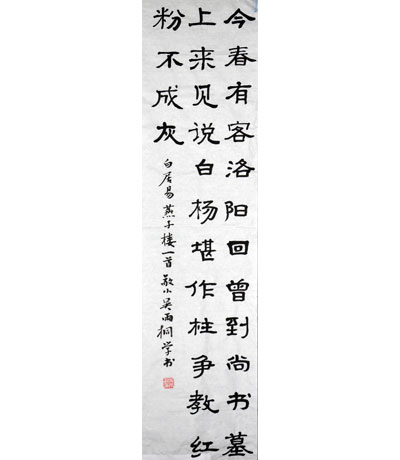 今春有客洛阳回曾到尚书墓
上来见说白杨堪作柱争教红
粉不成灰
白居易燕子楼一首敬小吴雨桐学书